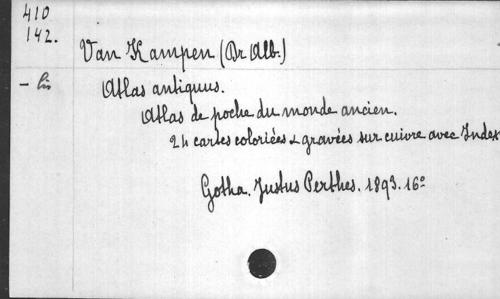 410
142.
Van Kampen (Dr Alb.)
- bis
Atlas antiquus.
Atlas de poche du monde ancien.
24 cartes coloriées & gravées sur cuivre avec Index
Gotha. Justus Perthes. 1893. 16°